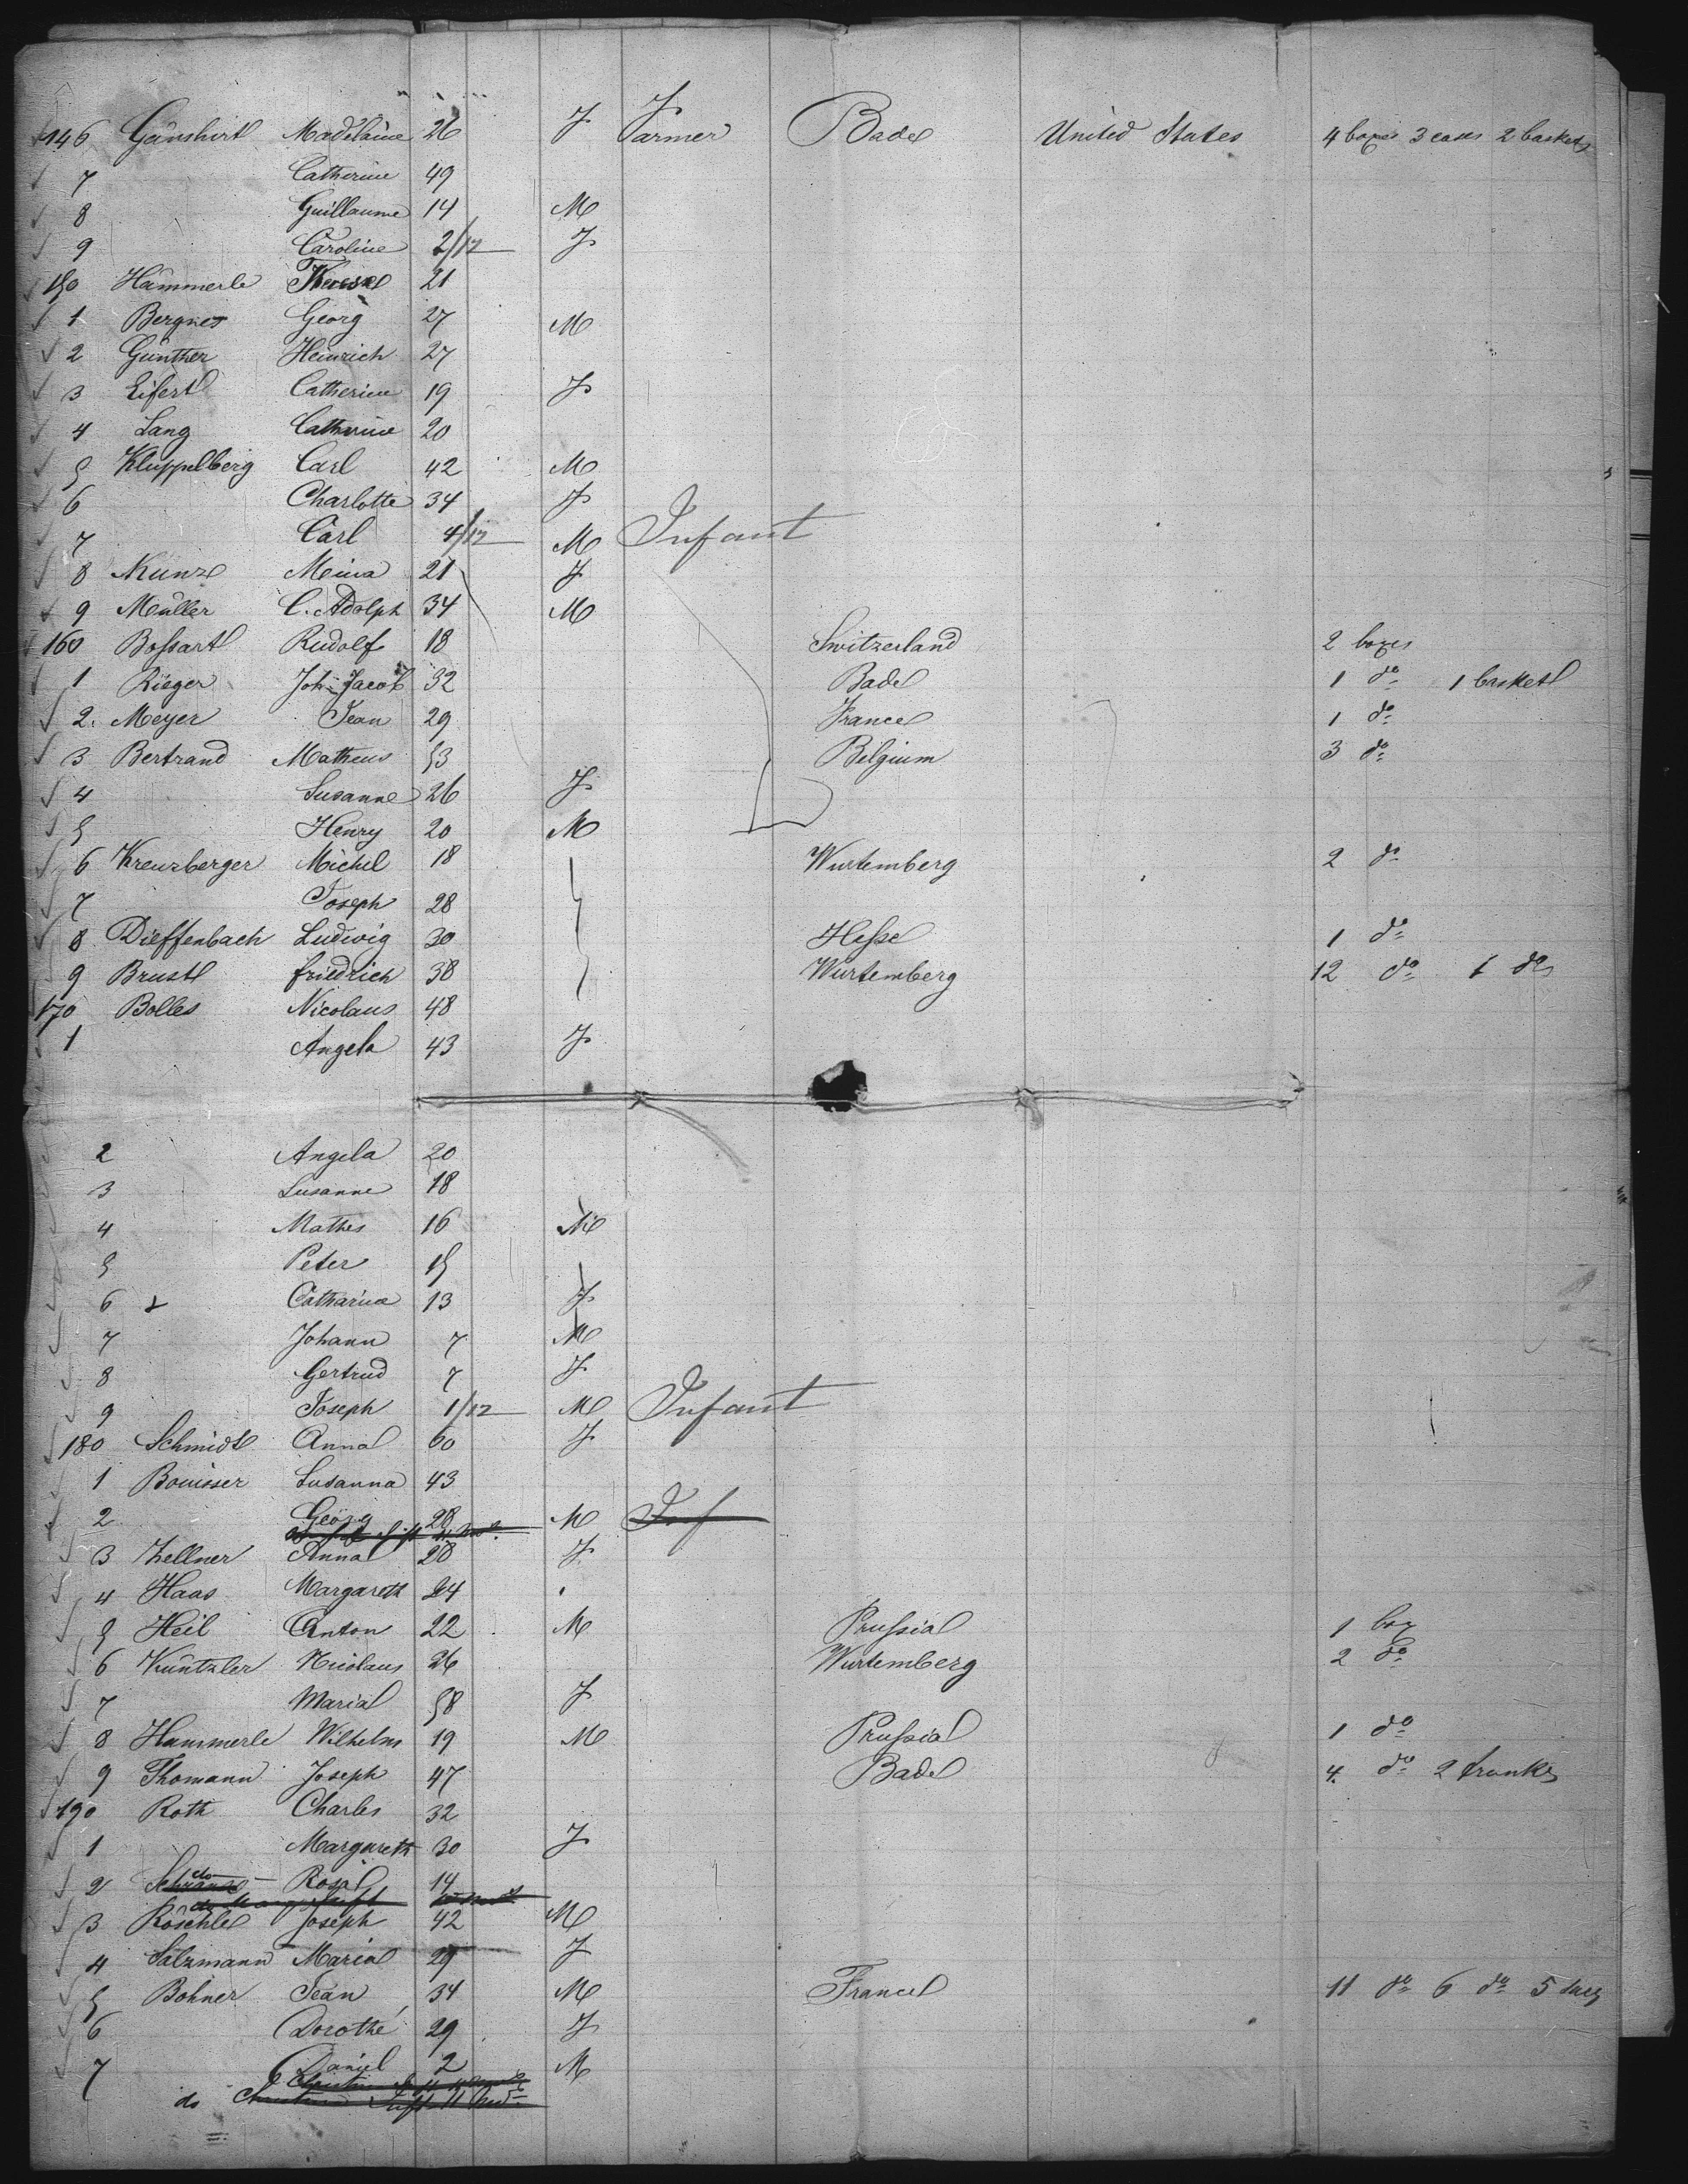 146 Gänshirt Madelaine 26 F Farmer Bade United States 4 boxes 3 cases 2 baskets
7 Catherine 49
8 Guillaume 14 M
9 Caroline 2/12 F
150 Hämmerle 21
1 Bergner Georg 27 M
2 Günther Heinrich 27
3 Eifert Catherine 19 F
4 Lang Catherine 20
5 Kluppelberg Carl 42 M
6 Charlotte 34 F
7 Carl 4/12 M Infant
8 Kunze Meina 21 F
9 Müller C. Adolph 34 M
160 Boſsart Rudolf 18 Switzerland 2 boxes
1 Rieger Joh. Jacob 32 Bade 1 do 1 basket
2. Meyer Jean 29 France 1 do
3 Bertrand Matheus 53 Belgium 3 do
4 Susanne 26 F
5 Henry 20 M
6 Kreuzberger Michel 18 Wurtemberg 2 do
7 Joseph 28
8 Dieffenbach Ludwig 30 Heſse 1 do
9 Brust friedrich 38 Wurtemberg 12 do 1 do
170 Bolles Nicolaus 48
1 Angela 43 F
2 Angela 20
3 Susanne 18
4 Mathes 16 M
5 Peter 15
6 Catharina 13 F
7 Johann 7 M
8 Gertrud 7 F
9 Joseph 1/12 M Infant
180 Schmidt Anna 60 F
1 Bouisser Susanna 43
2 Georg 28 M Inf
3 Zellner Anna 28 F
4 Haas Margareth 24
5 Heil Anton 22 M Pruſsia 1 box
6 Küntzler Nicolaus 26 Wurtemberg 2 do
7 Maria 58 F
8 Hammerle Wilhelm 19 M Pruſsia 1 do
9 Thomann Joseph 47 Bade 4. do 2 trunks
190 Roth Charles 32
1 Margareth 30 F
2 do Rosa 14
3 Röschle Joseph 42 M
4 Salzmann Maria 29 F
5 Bohner Jean 34 M France 11 do 6 do 5
6 Dorothé 29 F
7 Daniel 2 M
do